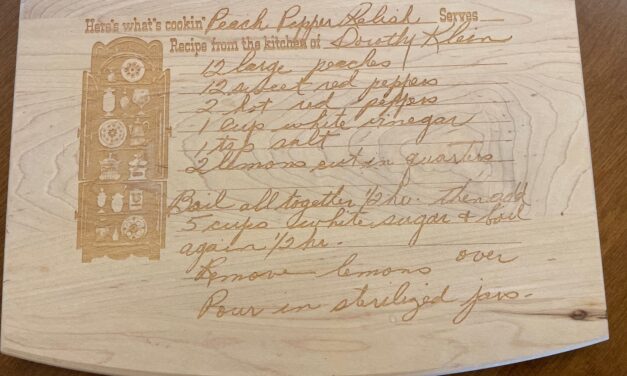 Here's what's cookin' Peach Pepper Relish Serves
Recipe from the kitchen of Dorothy Klein
12 large peaches
12 sweet red peppers
2 hot red peppers
1 cup white vinegar
1 tsp salt
2 lemons cut in quarters
Boil all together 1/2 ho. then add
5 cups white sugar & boil
again 1/2 hr.
Remove lemons over
Pour in sterilized jars.